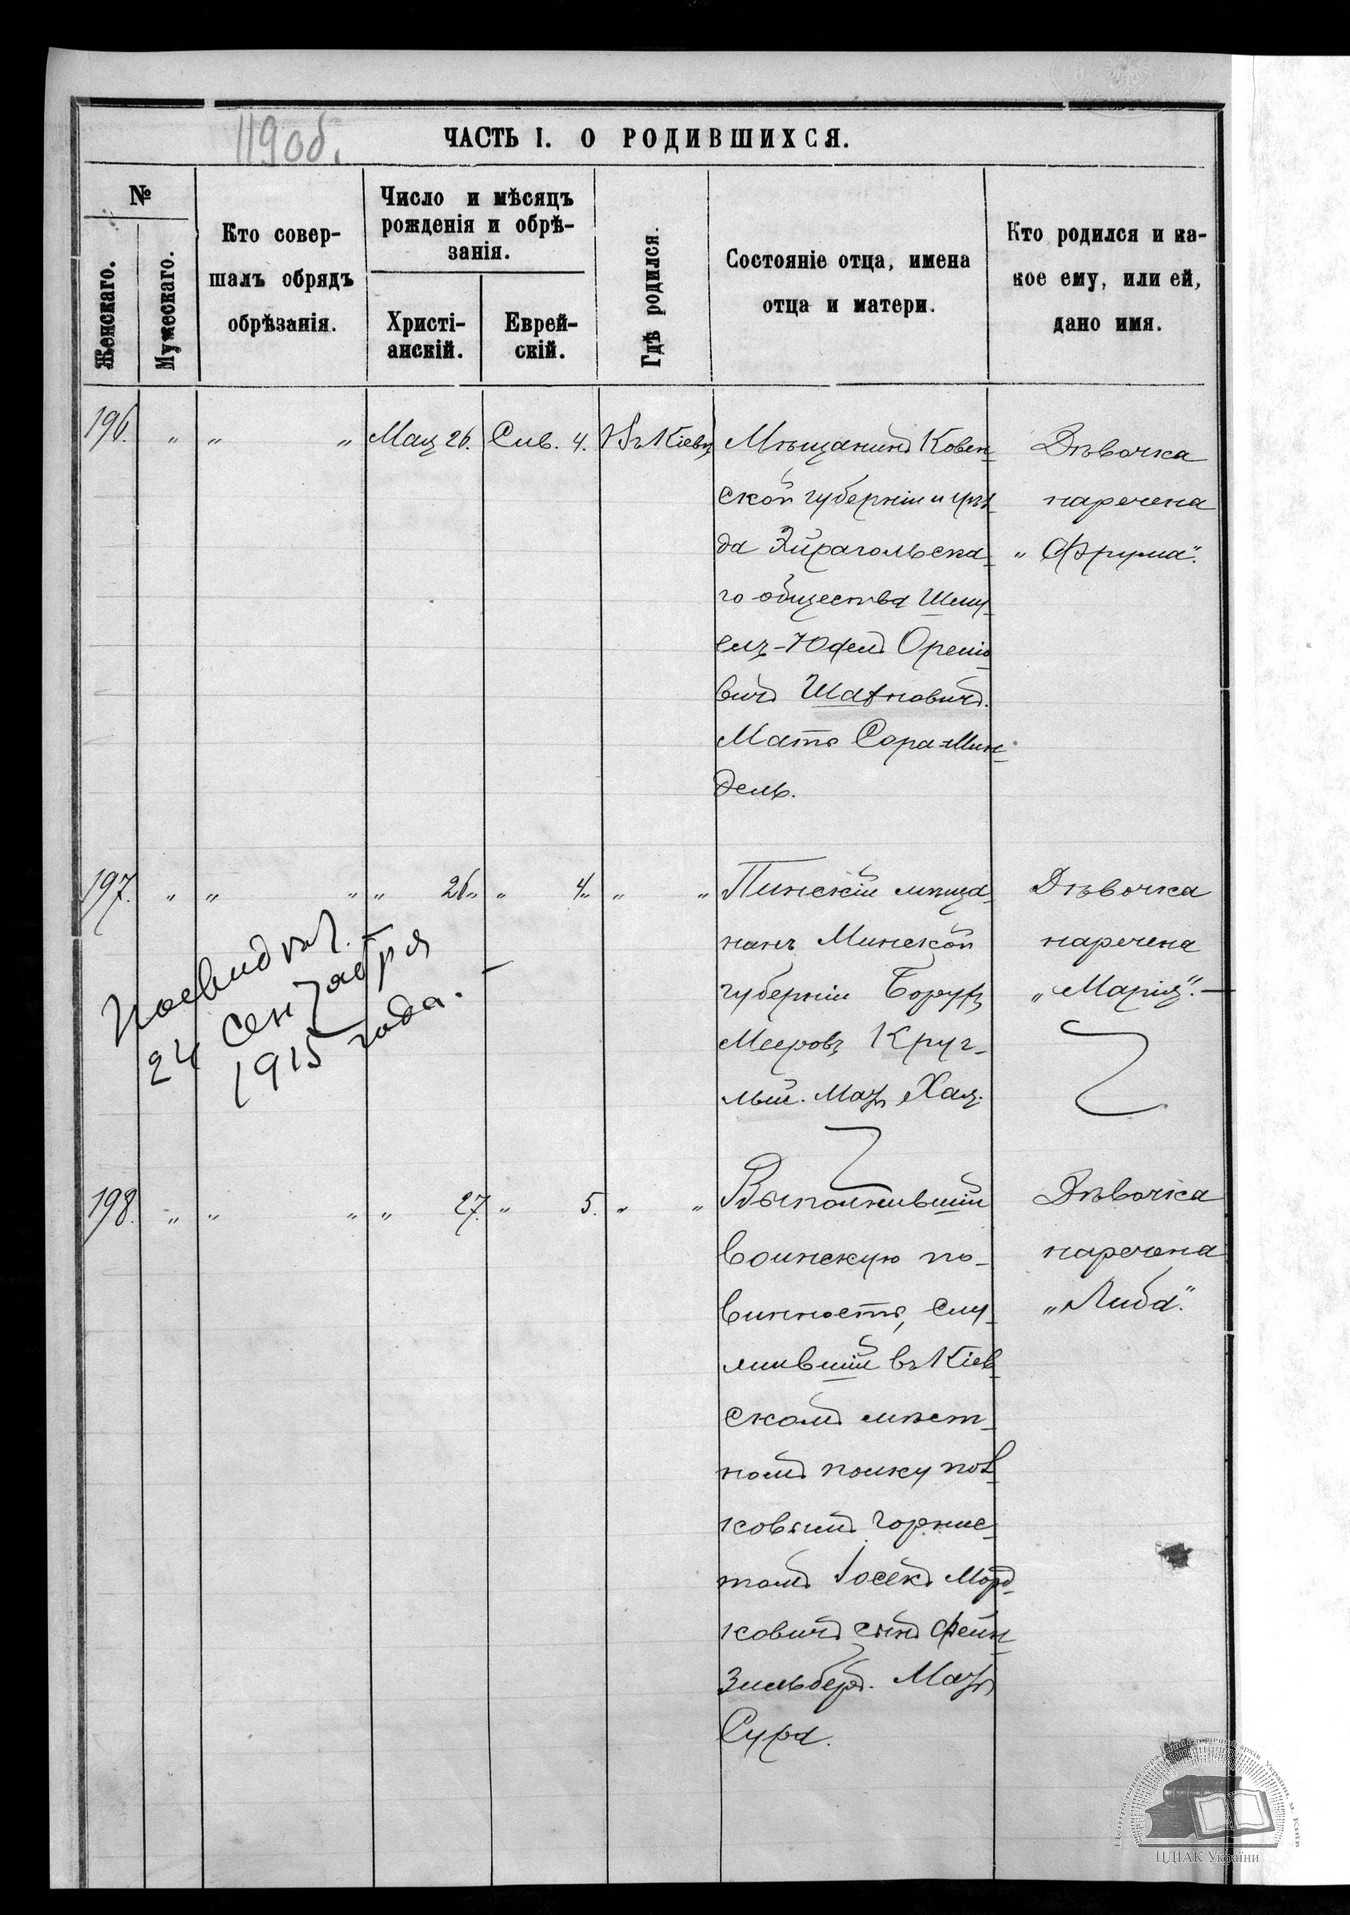 119об.
ЧАСТЬ I. О РОДИВШИХСЯ.
№
Женскаго.
Мужескаго.
Кто совер-
шалъ обрядъ
обрѣзанія.
Число и мѣсяцъ
рожденія и обрѣ-
занія.
Христі-
анскій.
Еврей-
скій.
Гдѣ родился.
Состояніе отца, имена
отца и матери.
Кто родился и ка-
кое ему, или ей,
дано имя.
196. " " " Мая 26. Сив. 4. Въ Кіевѣ
Мѣщанинъ Ковен-
ской губерніи и уѣз-
да Эйрагольска-
го общества Шму-
елъ-Юдель
вичъ
Мать Сора-Мин-
дель.
Дѣвочка
наречена
"Фрума".
197. " " " " 26 " " 4 " " "
Пинскій мѣща-
нинъ Минской
губерніи Борухъ
Мееровъ Круг-
лый. Мать Хая.
Дѣвочка
наречена
"Марія". —
24 сентября
1915 года. —
198. " " " " 27. " 5. " "
Выполнившій
воинскую по-
винность, слу-
жившій въ Кіев-
скомъ мѣст-
номъ полку пол-
ковымъ горнис-
томъ Іосекъ Морд-
ковичъ сынъ Фейн-
зильберъ. Мать
Сура.
Дѣвочка
наречена
"Либа".
ЦДІАК України